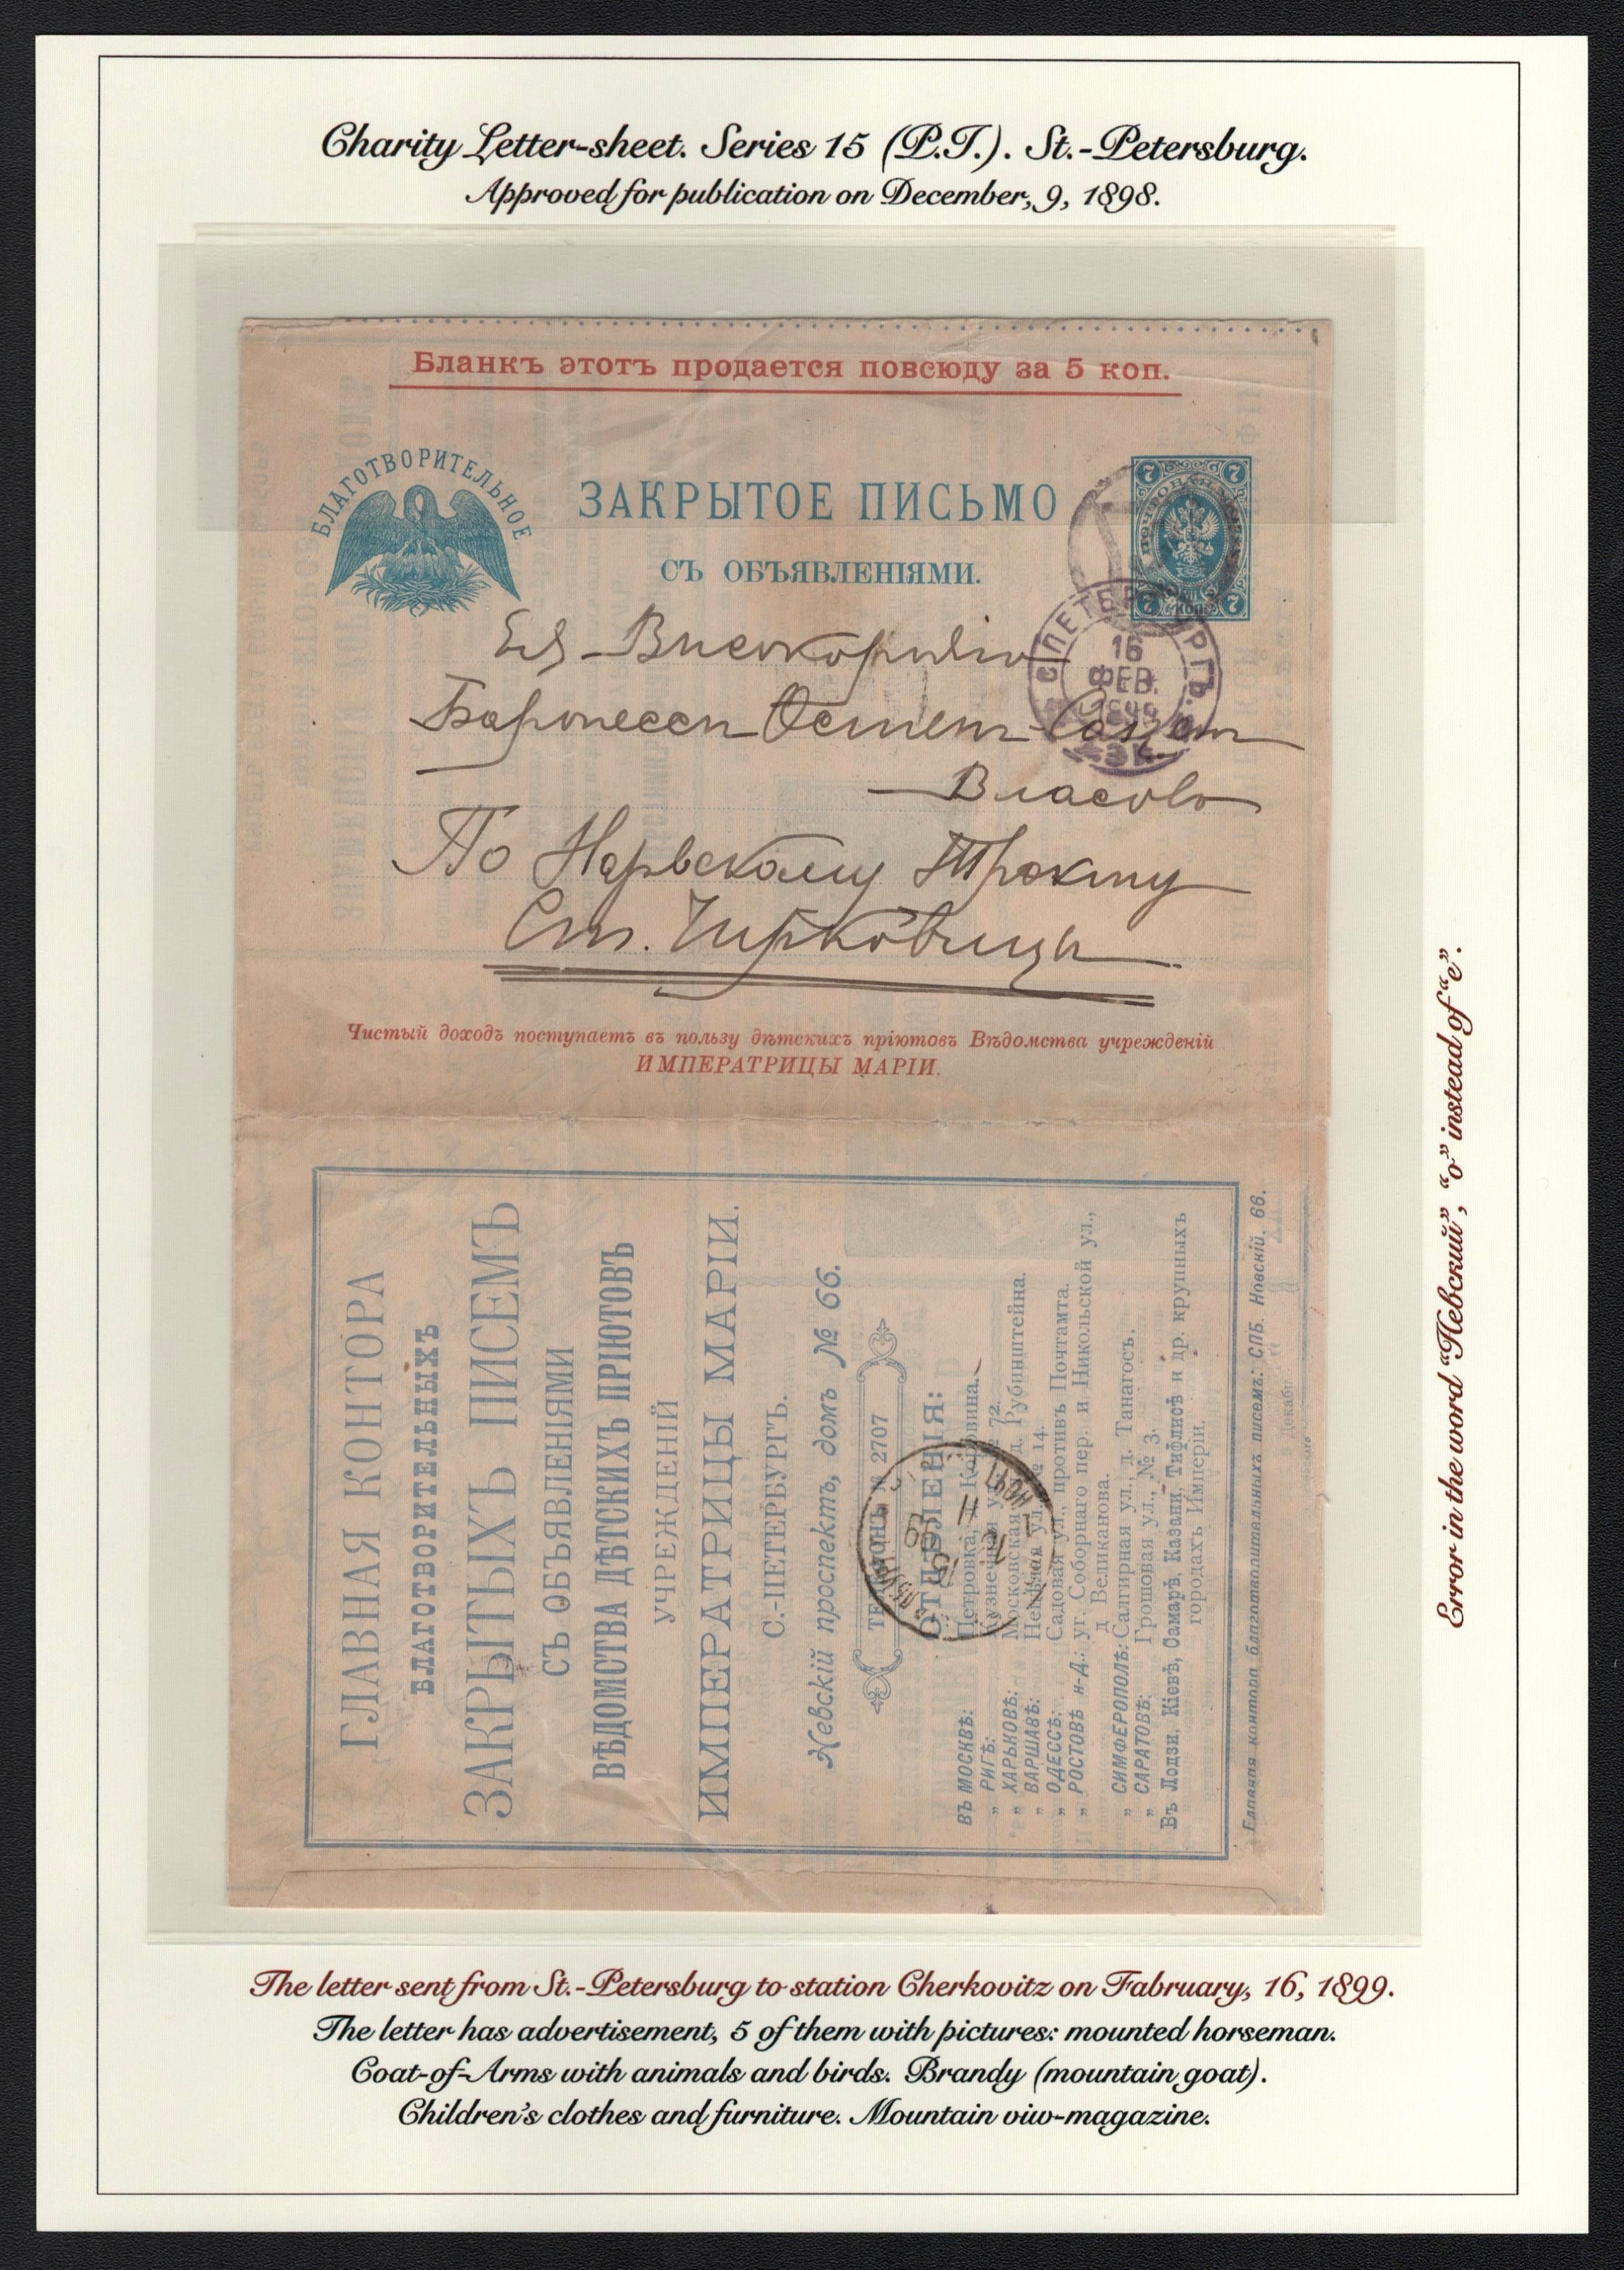 Charity Letter-sheet. Series 15 (P.T.). St.-Petersburg.
Approved for publication on December, 9, 1898.
Бланкъ этотъ продается повсюду за 5 коп.
БЛАГОТВОРИТЕЛЬНОЕ
ЗАКРЫТОЕ ПИСЬМО
СЪ ОБЪЯВЛЕНІЯМИ.
7 7
7 7
С.ПЕТЕРБУРГЪ.
16
ФЕВ.
1899
Ея
Баронессе Остен-Сакен
Власово
По Нарвскому Тракту
Ст. Чирковицы
Чистый доходъ поступаетъ въ пользу дѣтскихъ пріютовъ Вѣдомства учрежденій
ИМПЕРАТРИЦЫ МАРІИ.
ГЛАВНАЯ КОНТОРА
БЛАГОТВОРИТЕЛЬНЫХЪ
ЗАКРЫТЫХЪ ПИСЕМЪ
СЪ ОБЪЯВЛЕНІЯМИ
ВѢДОМСТВА ДѢТСКИХЪ ПРІЮТОВЪ
УЧРЕЖДЕНІЙ
ИМПЕРАТРИЦЫ МАРІИ.
С.-ПЕТЕРБУРГЪ.
Невскій проспектъ, домъ № 66.
ТЕЛЕФОНЪ № 2707
ОТДѢЛЕНІЯ:
ВЪ МОСКВѢ: Петровка, д. Коровина.
„ РИГѢ: Кузнечная у. № 72.
„ ХАРЬКОВѢ: Московская д. Рубинштейна.
„ ВАРШАВѢ: ул. № 14.
„ ОДЕССѢ: Садовая ул., противъ Почтамта.
„ РОСТОВѢ н-Д.: уг. Соборнаго пер. и Никольской ул.,
д. Великанова.
„ СИМФЕРОПОЛѢ: Салгирная ул., д. Танагосъ.
„ САРАТОВѢ: Грошовая ул., № 3.
Въ Лодзи, Кіевѣ, Самарѣ, Казани, Тифлисѣ и др. крупныхъ
городахъ Имперіи.
Главная контора благотворительныхъ писемъ: СПБ. Новскій, 66.
Error in the word “Невский”, “o” instead of “e”.
The letter sent from St.-Petersburg to station Cherkovitz on Fabruary, 16, 1899.
The letter has advertisement, 5 of them with pictures: mounted horseman.
Coat-of-Arms with animals and birds. Brandy (mountain goat).
Children's clothes and furniture. Mountain viw-magazine.